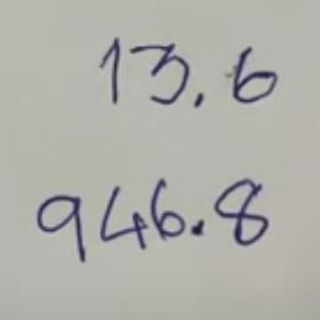 13.6
946.8